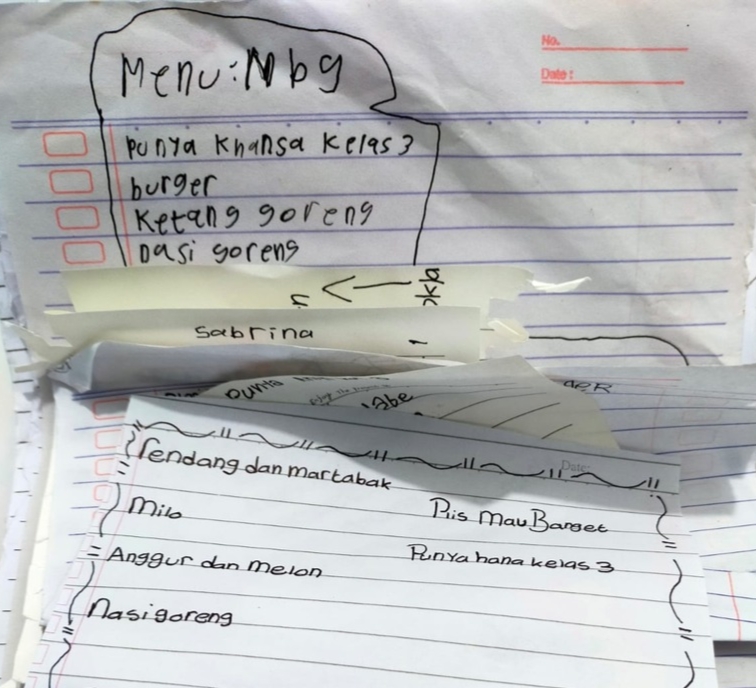 No.
Date:
Menu: Mbg
punya Khansa Kelas 3
burger
Ketang goreng
nasi goreng
Sabrina
punya
Date:
rendang dan martabak
Milo
Piis Mau Banget
Anggur dan Melon
Punya hana kelas 3
Nasi goreng